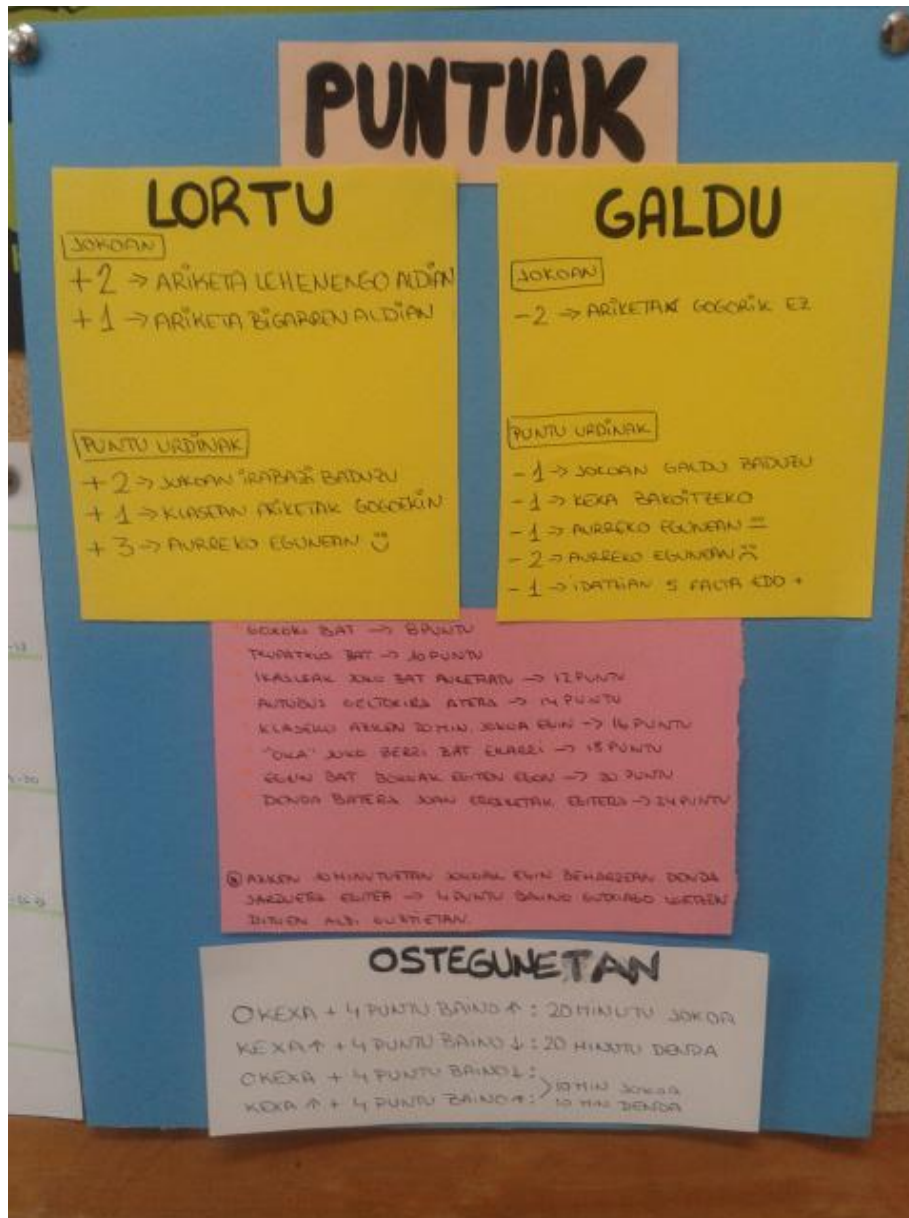 PUNTUAK
LORTU
JOKOAN
+2 → ARIKETA LEHENENGO ALDIAN
+1 → ARIKETA BIGARREN ALDIAN
PUNTU URDINAK
+2 → JOKOAN IRABAZI BADUZU
+1 → KLASEAN ARIKETAK GOGOEKIN
+3 → AURREKO EGUNEAN
GALDU
JOKOAN
-2 → ARIKETAK GOGORIK EZ
PUNTU URDINAK
-1 → JOKOAN GALDU BADUZU
-1 → KEXA BAKOITZEKO
-1 → AURREKO EGUNEAN
-2 → AURREKO EGUNEAN
-1 → IDATZIAN 5 FALTA EDO +
GOXOKI BAT → 8 PUNTU
BAT → 10 PUNTU
IKASLEAK JOKO BAT AUKERATU → 12 PUNTU
AUTOBUS GELTOKIRA ATERA → 14 PUNTU
KLASEKO AZKEN 20 MIN. JOKOA EGIN → 16 PUNTU
"OKA" JOKO BERRI BAT EKARRI → 18 PUNTU
EGUN BAT EGITEN EGON → 20 PUNTU
DENDA BATERA JOAN EROSKETAK EGITERA → 24 PUNTU
AZKEN 10 MINUTUETAN JOKOAK EGIN BEHARREAN DENDA
EGITEA → 4 PUNTU BAINO GUTXIAGO LORTZEN
DITUEN ALDI GUZTIETAN.
OSTEGUNETAN
0 KEXA + 4 PUNTU BAINO ↑ : 20 MINUTU JOKOA
KEXA ↑ + 4 PUNTU BAINO ↓ : 20 MINUTU DENDA
0 KEXA + 4 PUNTU BAINO ↓ :
KEXA ↑ + 4 PUNTU BAINO ↑ :
10 MIN JOKOA
10 MIN DENDA